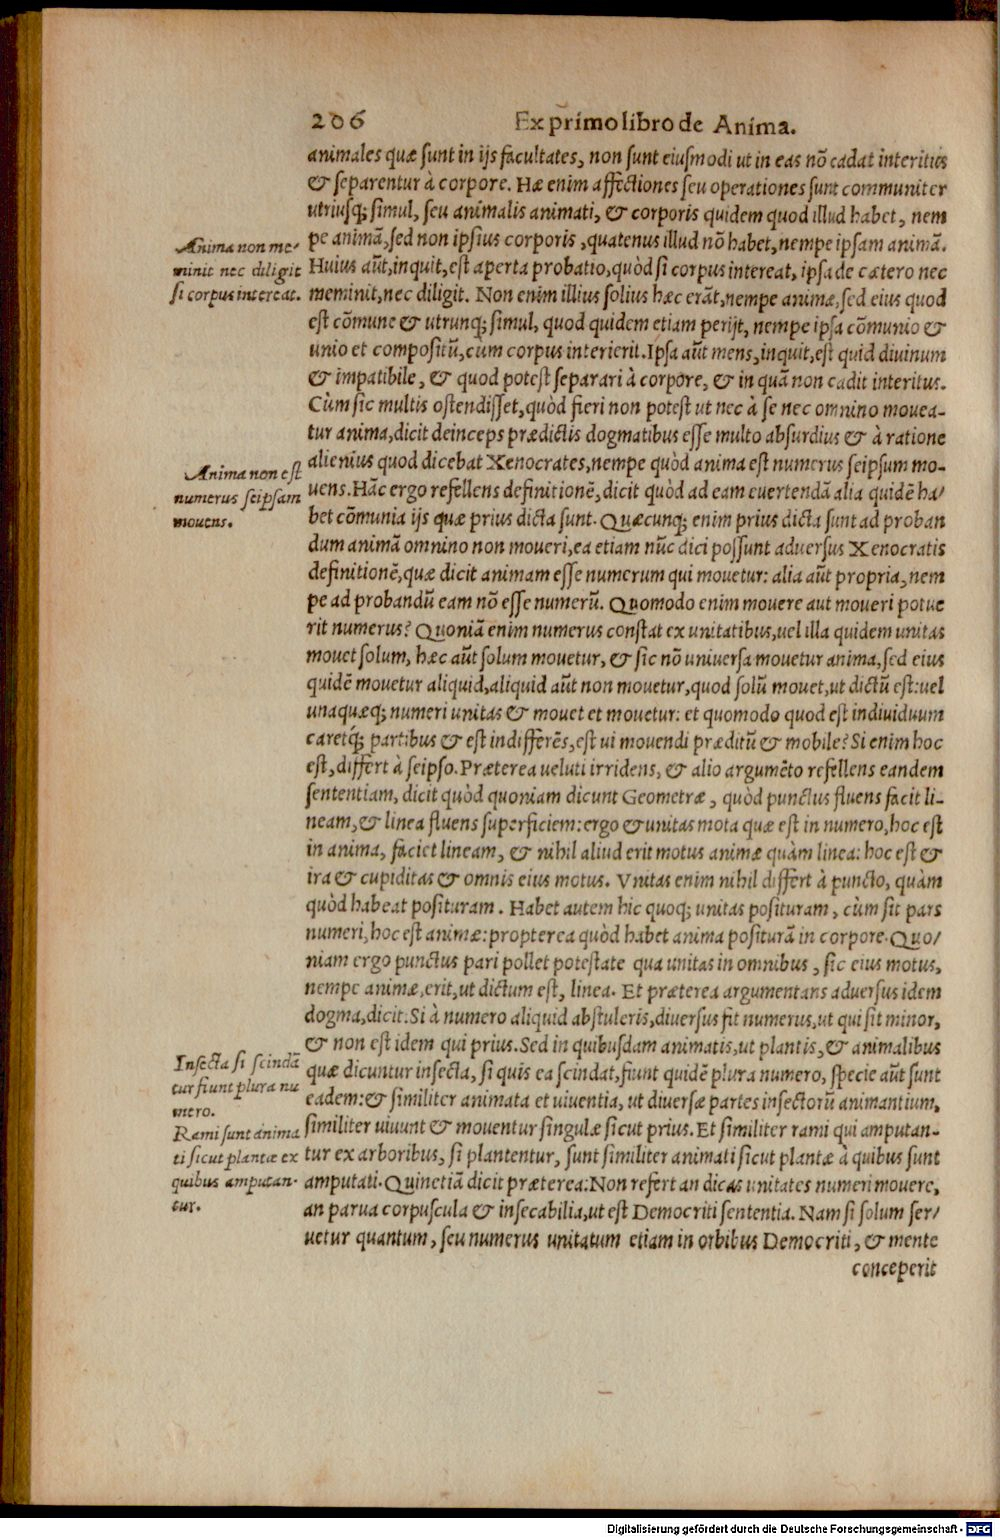 206 Ex primo libro de Anima.
animales quæ sunt in ijs facultates, non sunt eiusmodi ut in eas nõ cadat interitus
& separentur à corpore. Hæ enim affectiones seu operationes sunt communiter
utriusq; simul, seu animalis animati, & corporis quidem quod illud habet, nem
pe animã, sed non ipsius corporis, quatenus illud nõ habet, nempe ipsam animã.
Huius aũt, inquit, est aperta probatio, quòd si corpus intereat, ipsa de cætero nec
meminit, nec diligit. Non enim illius solius hæc erãt, nempe animæ, sed eius quod
est cõmune & utrunq; simul, quod quidem etiam perijt, nempe ipsa cõmunio &
unio et compositũ, cùm corpus interierit. Ipsa aũt mens, inquit, est quid diuinum
& impatibile, & quod potest separari à corpore, & in quã non cadit interitus.
Cùm sic multis ostendisset, quòd fieri non potest ut nec à se nec omnino mouea-
tur anima, dicit deinceps prædictis dogmatibus esse multo absurdius & à ratione
alienius quod dicebat Xenocrates, nempe quòd anima est numerus seipsum mo-
uens. Hãc ergo refellens definitionẽ, dicit quòd ad eam euertendã alia quidẽ ha/
bet cõmunia ijs quæ prius dicta sunt. Quæcunq; enim prius dicta sunt ad proban
dum animã omnino non moueri, ea etiam nũc dici possunt aduersus Xenocratis
definitionẽ, quæ dicit animam esse numerum qui mouetur: alia aũt propria, nem
pe ad probandũ eam nõ esse numerũ. Quomodo enim mouere aut moueri potue
rit numerus? Quoniã enim numerus constat ex unitatibus, uel illa quidem unitas
mouet solum, hæc aũt solum mouetur, & sic nõ uniuersa mouetur anima, sed eius
quidẽ mouetur aliquid, aliquid aũt non mouetur, quod solũ mouet, ut dictũ est: uel
unaquæq; numeri unitas & mouet et mouetur: et quomodo quod est indiuiduum
caretq́; partibus & est indifferẽs, est ui mouendi præditũ & mobile? Si enim hoc
est, differt à seipso. Præterea ueluti irridens, & alio argumẽto refellens eandem
sententiam, dicit quòd quoniam dicunt Geometræ, quòd punctus fluens facit li-
neam, & linea fluens superficiem: ergo & unitas mota quæ est in numero, hoc est
in anima, faciet lineam, & nihil aliud erit motus animæ quàm linea: hoc est &
ira & cupiditas & omnis eius motus. Vnitas enim nihil differt à puncto, quàm
quòd habeat posituram. Habet autem hic quoq; unitas posituram, cùm sit pars
numeri, hoc est animæ: propterea quòd habet anima positurã in corpore. Quo/
niam ergo punctus pari pollet potestate qua unitas in omnibus, sic eius motus,
nempe animæ, erit, ut dictum est, linea. Et præterea argumentans aduersus idem
dogma, dicit: Si à numero aliquid abstuleris, diuersus fit numerus, ut qui sit minor,
& non est idem qui prius. Sed in quibusdam animatis, ut plantis, & animalibus
quæ dicuntur insecta, si quis ea scindat, fiunt quidẽ plura numero, specie aũt sunt
eadem: & similiter animata et uiuentia, ut diuersæ partes insectorũ animantium,
similiter uiuunt & mouentur singulæ sicut prius. Et similiter rami qui amputan-
tur ex arboribus, si plantentur, sunt similiter animati sicut plantæ à quibus sunt
amputati. Quinetiã dicit præterea: Non refert an dicas unitates numeri mouere,
an parua corpuscula & insecabilia, ut est Democriti sententia. Nam si solum ser/
uetur quantum, seu numerus unitatum etiam in orbibus Democriti, & mente
conceperit
Anima non me/
minit nec diligit
si corpus intereat.
Anima non est
numerus seipsam
mouens.
Insecta si scindã
tur fiunt plura nu
mero.
Rami sunt anima
ti sicut plantæ ex
quibus amputan-
tur.
Digitalisierung gefördert durch die Deutsche Forschungsgemeinschaft - DFG